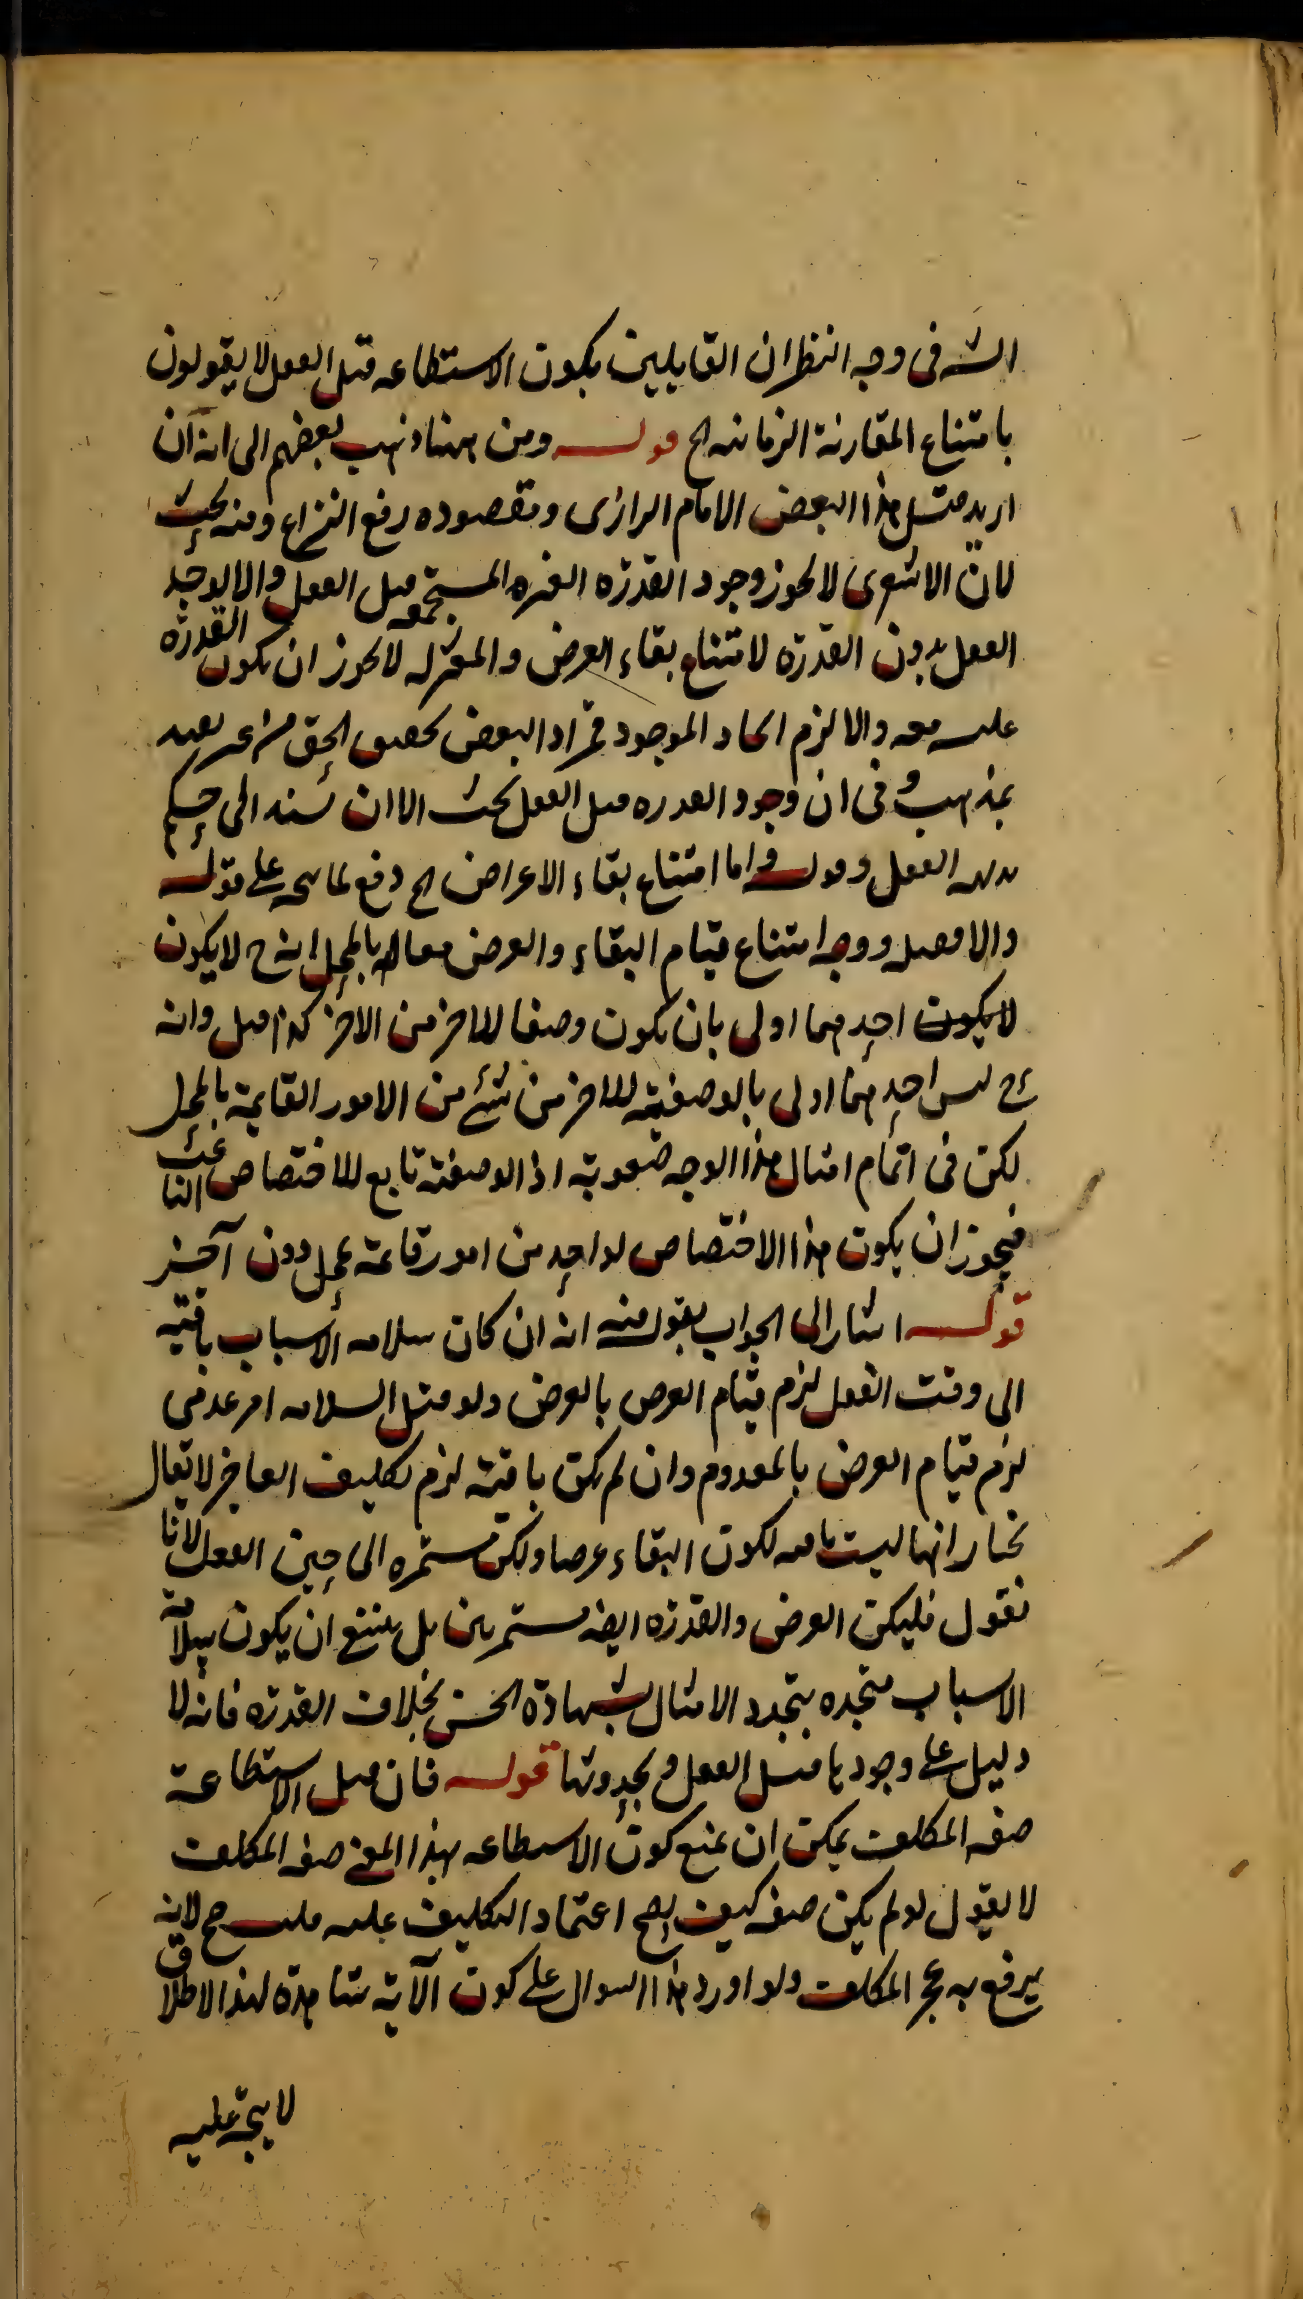 الشه فى وجه النظر ان القايلين بكون الاستطاعه قبل الفعل لا يقولون
بامتناع المقارنة الزمانيه الخ قوله ومن ههنا ذهب بعضهم الى انه ان
اريد قيل هذا البعض الامام الرازى ومقصوده رفع النزاع وفيه بحث
لان الاشعرى لا يجوز وجود القدرة الغير المستجمعه قبل الفعل والا لوجد
الفعل بدون القدرة لامتناع بقاء العرض والمعتزله لا يجوز ان يكون القدرة
معه والا لزم ايجاد الموجود فمراد البعض تحقيق الحق من غير تقييد
بمذهب وفى ان وجود القدره قبل الفعل بحث الا ان يسند الى حكم
بديهه العقل وقوله واما امتناع بقاء الاعراض الخ دفع لما يتجه على قوله
ووجه امتناع قيام البقاء والعرض معا بالمحل انه ح لا يكون
لا يكون احدهما اولى بان يكون وصفا للاخر من الاخر كذا قيل وانه
ح ليس احدهما اولى بالوصفية للاخر من شئ من الامور القايمة بالمحل
لكن فى اتمام امثال هذا الوجه صعوبة اذ الوصفية تابع للاختصاص الناعت
فيجوز ان يكون هذا الاختصاص لواحد من امور قائمة بمحل دون آخر
قوله اشار الى الجواب بقوله فيه انه ان كان سلامه الاسباب باقيه
الى وقت الفعل لزم قيام العرض بالعرض ولو قيل السلامه امر عدمى
لزم قيام العرض بالمعدوم وان لم يكن باقية لزم تكليف العاجز لا يقال
نختار انها ليست باقيه لكون البقاء عرضا ولكن مستمره الى حين الفعل لانا
نقول فليكن العرض والقدرة ايضه مستمرين بل يمتنع ان يكون سلامة
الاسباب متجدده بتجدد الامثال بشهادة الحس بخلاف القدرة فانه لا
دليل على وجودها قبل الفعل وتجددها قوله فان قيل الاستطاعة
صفه المكلف يمكن ان يمنع كون الاستطاعه بهذا المعنى صفه المكلف
لا يقول لو لم يكن صفه كيف يصح اعتماد التكليف عليه قلت صح لانه
يرفع به عجز المكلف ولو اورد هذا السوال على كون الآية شاهدة لهذا الاطلاق
لا يتجه عليه